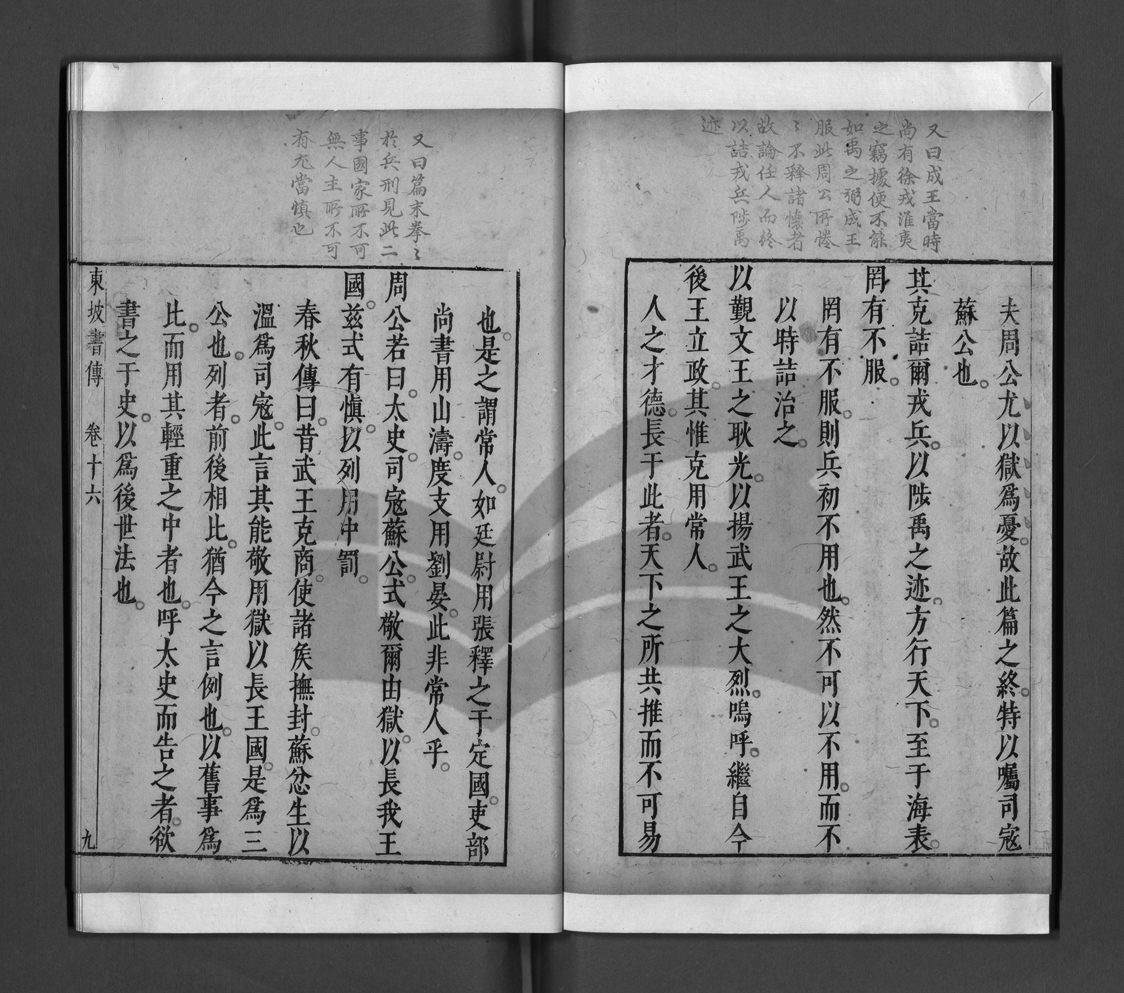 又曰成王當時
尚有徐戎淮夷
之竊據使不能
如禹之弼成王
服此周公所惓
〻不釋諸懷者
故論任人而終
以詰戎兵陟禹
迹
夫周公尤以獄爲憂故此篇之終特以囑司寇
蘇公也
其克詰爾戎兵以陟禹之迹方行天下至于海表
罔有不服
罔有不服則兵初不用也然不可以不用而不
以時詰治之
以覲文王之耿光以揚武王之大烈嗚呼繼自今
後王立政其惟克用常人
人之才德長于此者天下之所共推而不可易
又曰篇末拳〻
於兵刑見此二
事國家所不可
無人主所不可
有尤當慎也
也是之謂常人如廷尉用張釋之于定國吏部
尚書用山濤度支用劉晏此非常人乎
周公若曰太史司寇蘇公式敬爾由獄以長我王
國茲式有慎以列用中罰
春秋傳曰昔武王克商使諸矦撫封蘇忿生以
溫爲司寇此言其能敬用獄以長王國是爲三
公也列者前後相比猶今之言例也以舊事爲
比而用其輕重之中者也呼太史而告之者欲
書之于史以爲後世法也
東坡書傳 卷十六 九